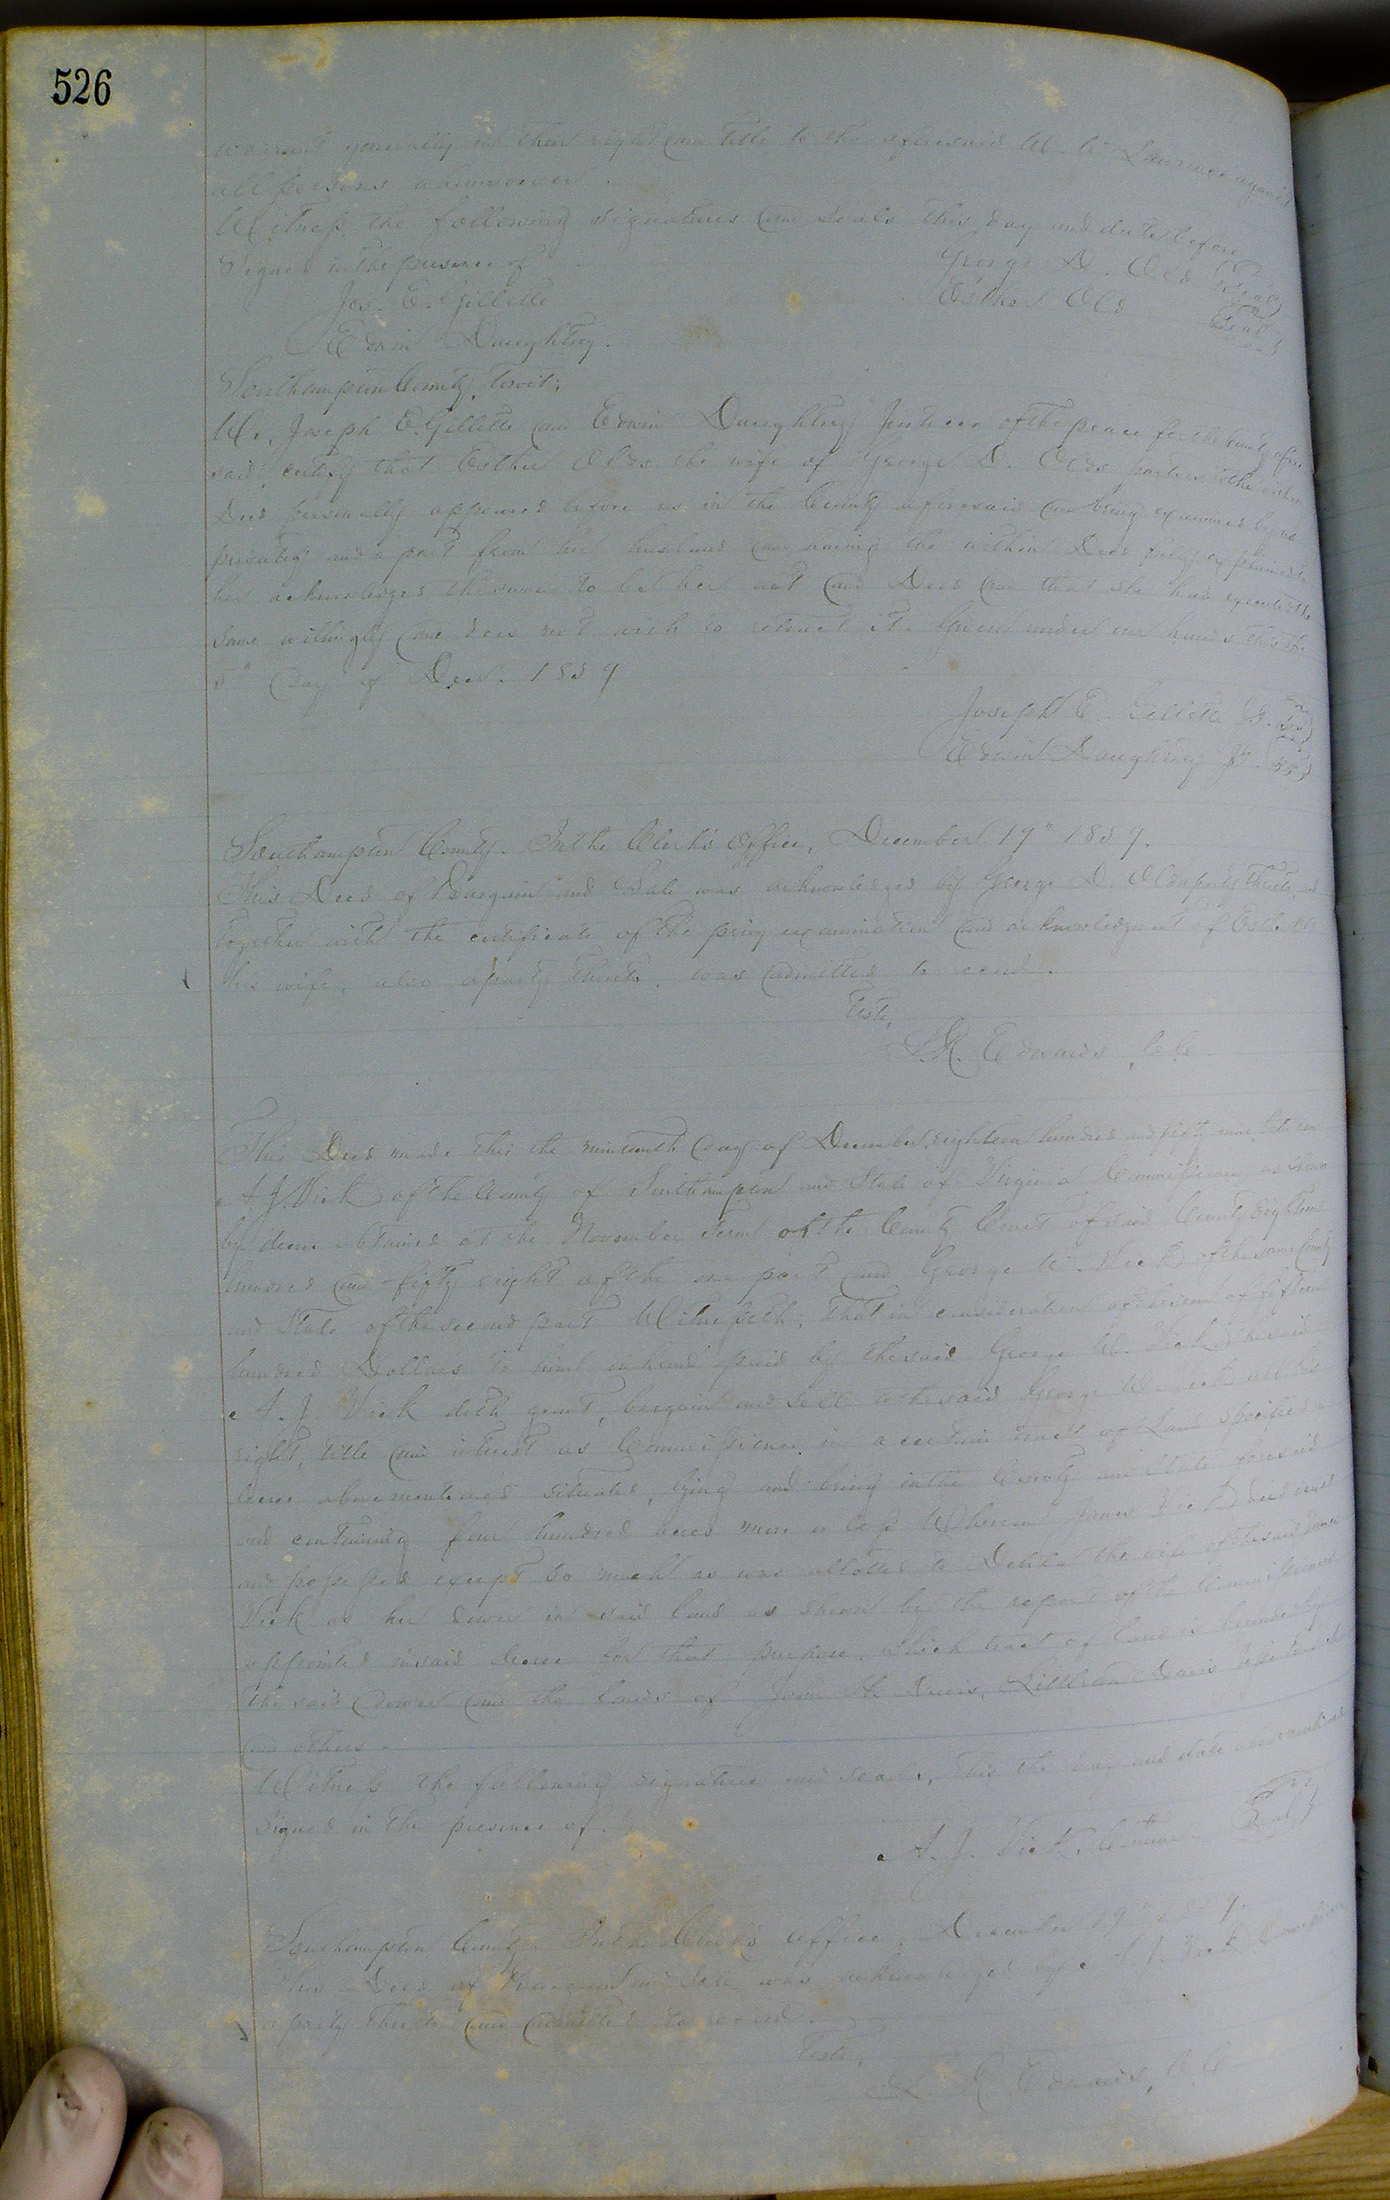 526
warrant generally in their right and title to the aforesaid W. W. Lawrence against
all persons whomsoever.
Witness the following signatures and seals this day and date before
Signed in the presence of George D. Olds Seal
Jos. E. Gillette Esther Olds Seal
Edwin Daughtrey.
Southampton County, towit;
We, Joseph E. Gillette and Edwin Daughtrey Justices of the peace for the County afore
said, certify that Esther Olds the wife of George D. Olds parties to the within
Deed personally appeared before us in the County aforesaid and being examined by us
privately and apart from her husband and having the within Deed fully explained to
her acknowledged the same to be her act and Deed and that she had executed the
same willingly and does not wish to retract it. Given under our hands this the
day of Decr. 1859
Joseph E. Gillette J.P. Seal
Edwin Daughtrey JP. Seal
Southampton County. In the Clerk's Office, December 19" 1859.
This Deed of Bargain and Sale was acknowledged by George D. Olds a party thereto, and
together with the certificate of the privy examination and acknowledgment of Esther Olds
his wife, also a party thereto, was admitted to record.
Teste,
L. R. Edwards, C. C.
This Deed made this the nineteenth day of December, eighteen hundred and fifty nine between
A. J. Vick of the County of Southampton and State of Virginia Commissioner as shown
by decree obtained at the November Term of the County Court of said County Eighteen
hundred and fifty eight of the one part and George W. Vick of the same County
and State of the second part Witnesseth; that in consideration of the sum of fifteen
hundred Dollars to him in hand paid by the said George W. Vick, the said
A. J. Vick doth grant, bargain and sell to the said George W. Vick all his
right, title and interest as Commissioner in a certain tract of Land specified in
decree above mentioned situated, lying and being in the County and State aforesaid
and containing four hundred acres more or less Whereon James Vick deed
and possessed except so much as was allotted to Delila the wife of the said James
Vick as her dower in said land as shown by the report of the Commissioners
appointed in said decree for that purpose, which tract of land is bounded by
the said dower and the lands of John H. Davis, Littleton Davis
and others.
Witness the following signature and seal, this the day and date above mentioned
Signed in the presence of.
A. J. Vick, Seal
Southampton County. In the Clerk's office, December 19" 1859.
This Deed of Bargain and Sale was acknowledged by A. J. Vick Commissioner
a party thereto and admitted to record.
Teste,
L. R. Edwards, C. C.